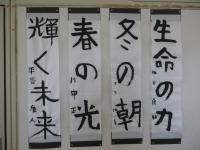 生命の力
冬の朝
春の光
輝く未来